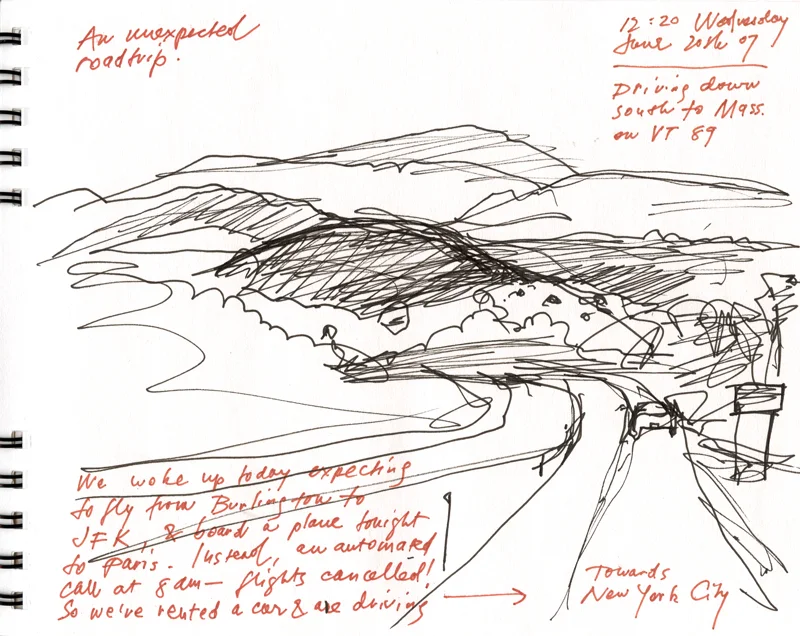 An unexpected
roadtrip.
12:20 Wednesday
June 20th 07
Driving down
south to Mass.
on VT 89
We woke up today expecting
to fly from Burlington to
JFK, & board a plane tonight
to Paris. Instead, an automated
call at 8 am – flights cancelled!
So we've rented a car & are driving
Towards
New York City